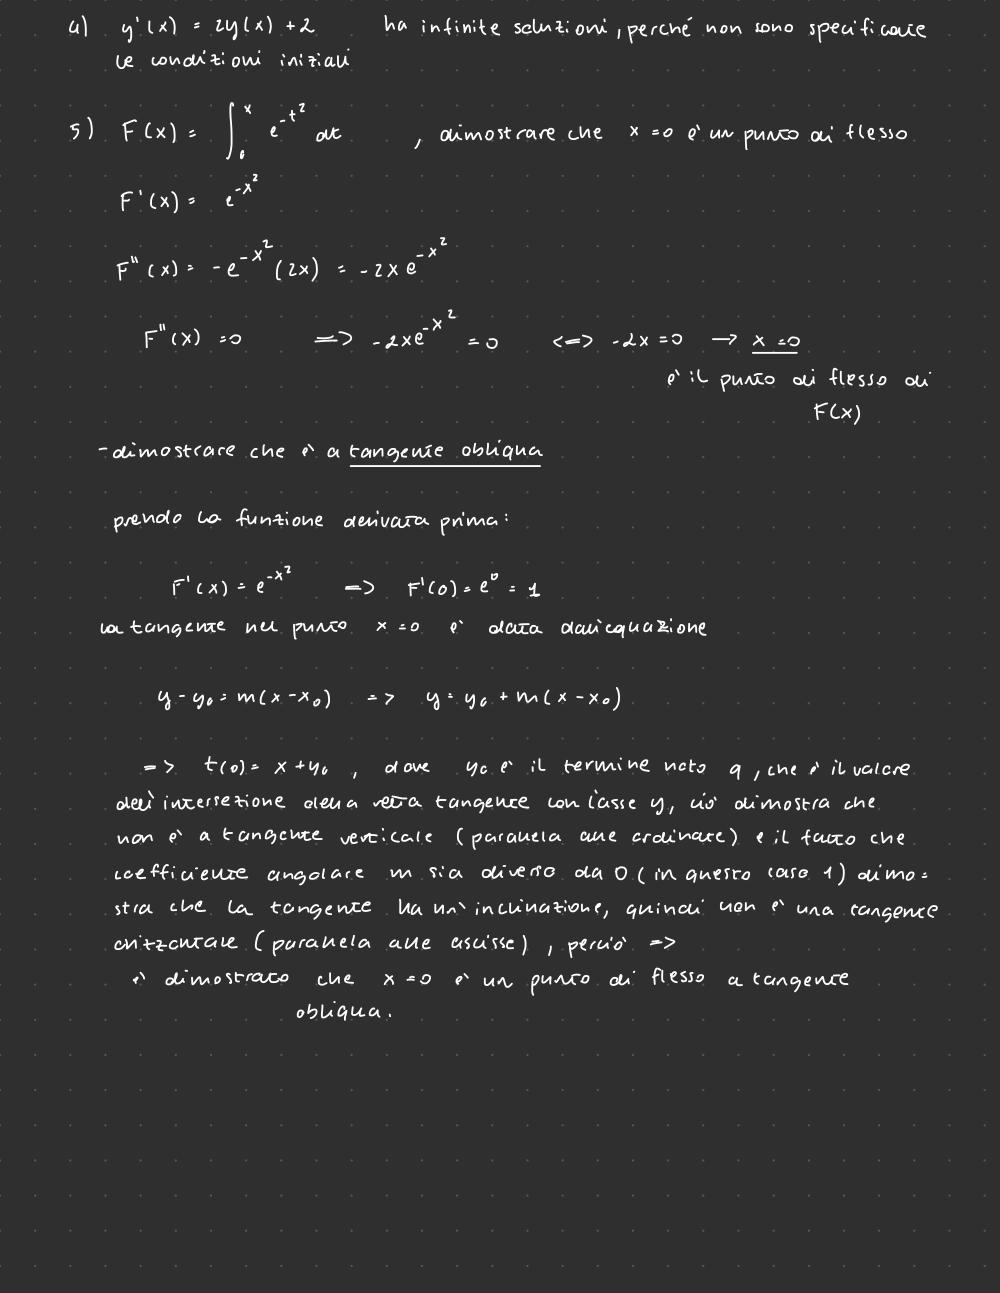 4) y'(x) = 2y(x) + 2 ha infinite soluzioni, perché non sono specificate
le condizioni iniziali
5) F(x) = ∫₀ˣ e^{-t²} dt , dimostrare che x=0 è un punto di flesso
F'(x) = e^{-x²}
F''(x) = -e^{-x²}(2x) = -2xe^{-x²}
F''(x) =0 => -2xe^{-x²} = 0 <=> -2x =0 → x =0
è il punto di flesso di
F(x)
- dimostrare che è a tangente obliqua
prendo la funzione derivata prima:
F'(x) = e^{-x²} => F'(0) = e⁰ = 1
la tangente nel punto x =0 è data dall'equazione
y - y₀ = m(x-x₀) => y = y₀ + m(x-x₀)
=> t(0) = x + y₀ , dove y₀ è il termine noto q, che è il valore
dell'intersezione della retta tangente con l'asse y, ciò dimostra che
non è a tangente verticale (parallela alle ordinate) e il fatto che
coefficiente angolare m sia diverso da 0 (in questo caso 1) dimo=
stra che la tangente ha un'inclinazione, quindi non è una tangente
orizzontale (parallela alle ascisse), perciò =>
è dimostrato che x =0 è un punto di flesso a tangente
obliqua.